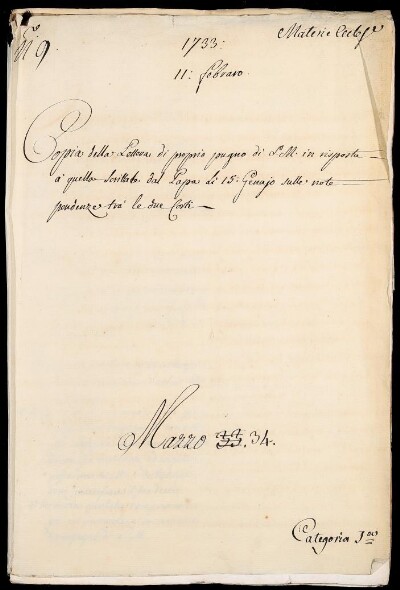 N.º 9.
Materie Eccles.e
1733:
11: febraro.
Coppia della Lettera di proprio pugno di S. M. in risposta
à quella scrittale dal Papa li 15: Genajo sulle note
pendenze trà le due Corti
Mazzo 33. 34.
Categoria